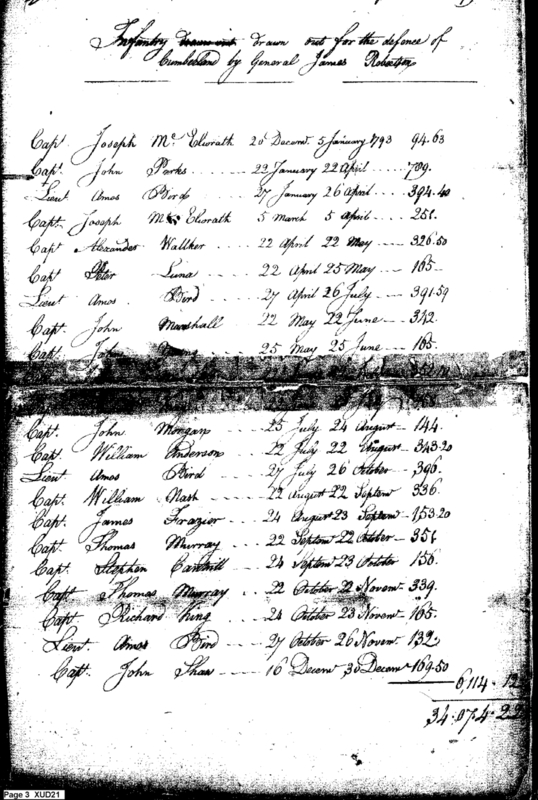 Infantry drawn out for the defence of
Cumberland by General James Robertson
Capt Joseph Mc Elwrath 20 Decemr. 5 January 1793 94.63
Capt. John Parks .... 22 January 22 April .... 709.
Lieut Amos Bird 27 January 26 April .... 394.40
Capt. Joseph Mc Elwrath 5 March 5 April .... 251.
Capt Alexander Wallker .... 22 April 22 May .... 326.50
Capt Peter Luna .... 22 April 25 May .... 165
Lieut Amos Bird .... 27 April 26 July .... 391.59
Capt. John Marshall .... 22 May 22 June .... 342
Capt. John .... 25 May 25 June .... 165.
Capt. John Morgan .... 25 July 24 August .... 144.
Capt. William Anderson .... 22 July 22 August .... 343.20
Lieut Amos Bird .... 27 July 26 October .... 390.
Capt. William Nash .... 22 August 22 Septemr 336.
Capt. James Frazior .... 24 August 23 Septemr 153.20
Capt. Thomas Murray .... 22 Septemr 22 October 351
Capt. Stephen Cantrill .... 24 Septemr 23 October 156.
Capt Thomas Murray .... 22 October 22 Novemr. 339.
Capt Richard King .... 24 October 23 Novemr. 165.
Lieut. Amos Bird .... 27 October 26 Novemr. 132.
Capt. John Shaw .... 16 Decemr 30 Decemr 169.50
6,114.12
34.074.22
Page 3 XUD21